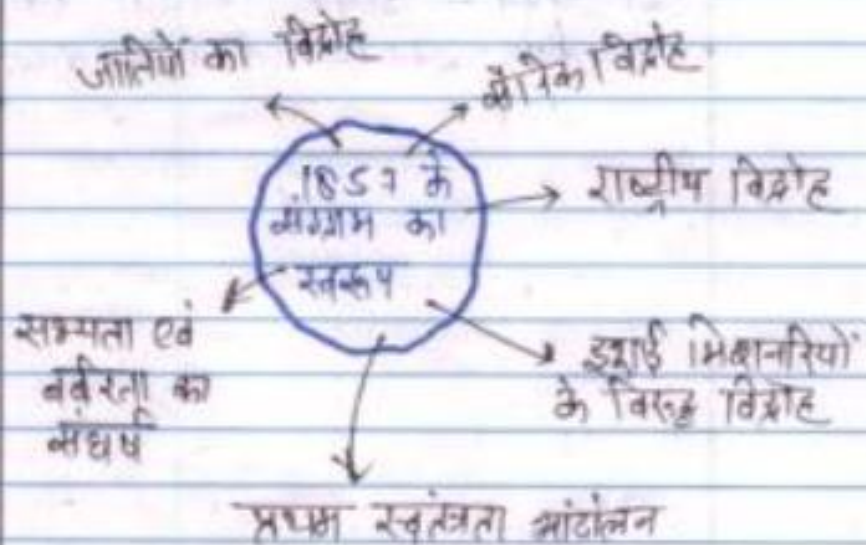 जातियों का विद्रोह
सैनिक विद्रोह
1857 के
संग्राम का
स्वरूप
राष्ट्रीय विद्रोह
सभ्यता एवं
बर्बरता का
संघर्ष
इसाई मिशनरियों
के विरुद्ध विद्रोह
प्रथम स्वतंत्रता आंदोलन